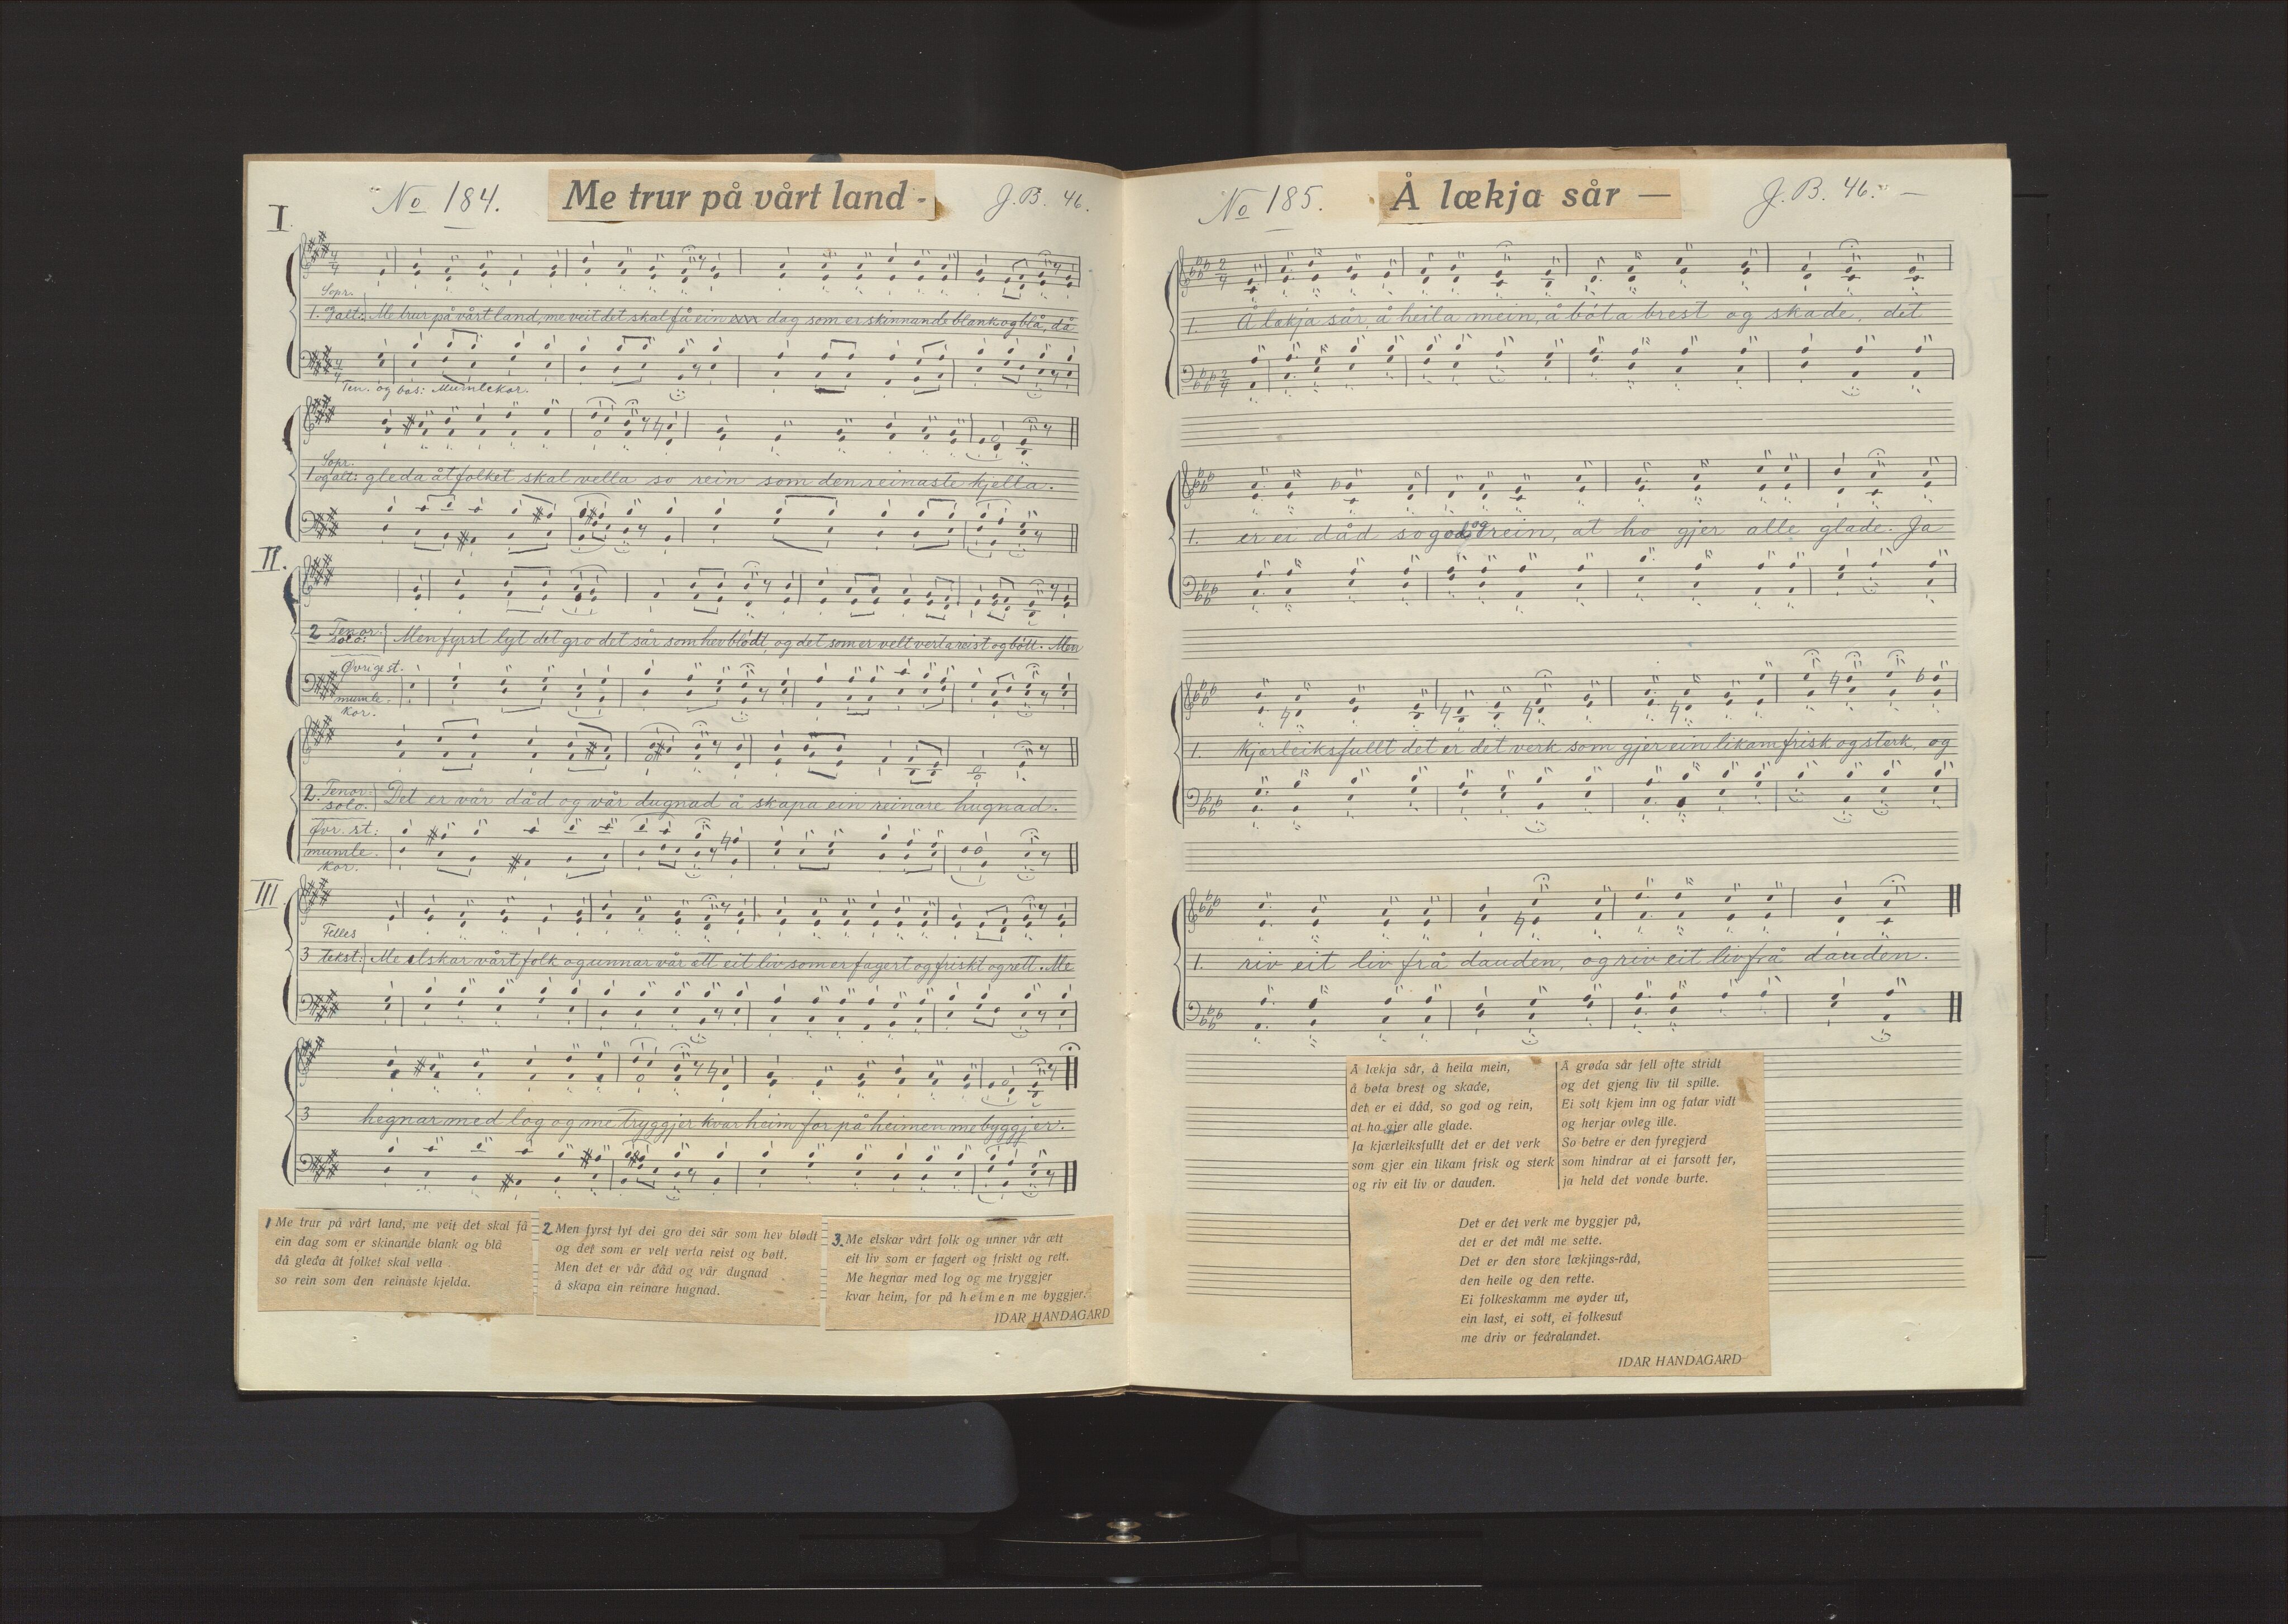 No 184.
Me trur på vårt land -
J.B. 46.
I.
Sopr.
1. og alt: Me trur på vårt land, me veit det skal få ein dag som er skinnande blank og blå, då
Ten. og bas: Mumlekor.
Sopr.
1 og alt: gleda åt folket skal vella so rein som den reinaste kjella.
II.
2 Tenor solo: Men fyrst lyt det gro det sår som hev blødt, og det som er velt verta reist og bøtt. Men
Øvrige st.
mumle-
kor.
2. Tenor solo: Det er vår dåd og vår dugnad å skapa ein reinare hugnad.
Øvr. st:
mumle-
kor.
III
Felles
3 tekst: Me elskar vårt folk og unnar vår ætt eit liv som er fagert og friskt og rett. Me
3 hegnar med log og me tryggjer kvar heim for på heimen me byggjer.
1 Me trur på vårt land, me veit det skal få
ein dag som er skinande blank og blå
då gleda åt folket skal vella
so rein som den reinaste kjelda.
2. Men fyrst lyt dei gro dei sår som hev blødt
og det som er velt verta reist og bøtt.
Men det er vår dåd og vår dugnad
å skapa ein reinare hugnad.
3. Me elskar vårt folk og unner vår ætt
eit liv som er fagert og friskt og rett.
Me hegnar med log og me tryggjer
kvar heim, for på heimen me byggjer.
IDAR HANDAGARD
No 185.
Å lækja sår —
J.B. 46. —
1. Å lækja sår, å heila mein, å bøta brest og skade, det
1. er ei dåd so god og rein, at ho gjer alle glade. Ja
1. kjærleiksfullt det er det verk som gjer ein likam frisk og sterk, og
1. riv eit liv frå dauden, og riv eit liv frå dauden.
Å lækja sår, å heila mein,
å bøta brest og skade,
det er ei dåd, so god og rein,
at ho gjer alle glade.
Ja kjærleiksfullt det er det verk
som gjer ein likam frisk og sterk
og riv eit liv or dauden.
Å grøda sår fell ofte stridt
og det gjeng liv til spille.
Ei sott kjem inn og fatar vidt
og herjar ovleg ille.
So betre er den fyregjerd
som hindrar at ei farsott fer,
ja held det vonde burte.
Det er det verk me byggjer på,
det er det mål me sette.
Det er den store lækjings-råd,
den heile og den rette.
Ei folkeskamm me øyder ut,
ein last, ei sott, ei folkesut
me driv or fedralandet.
IDAR HANDAGARD